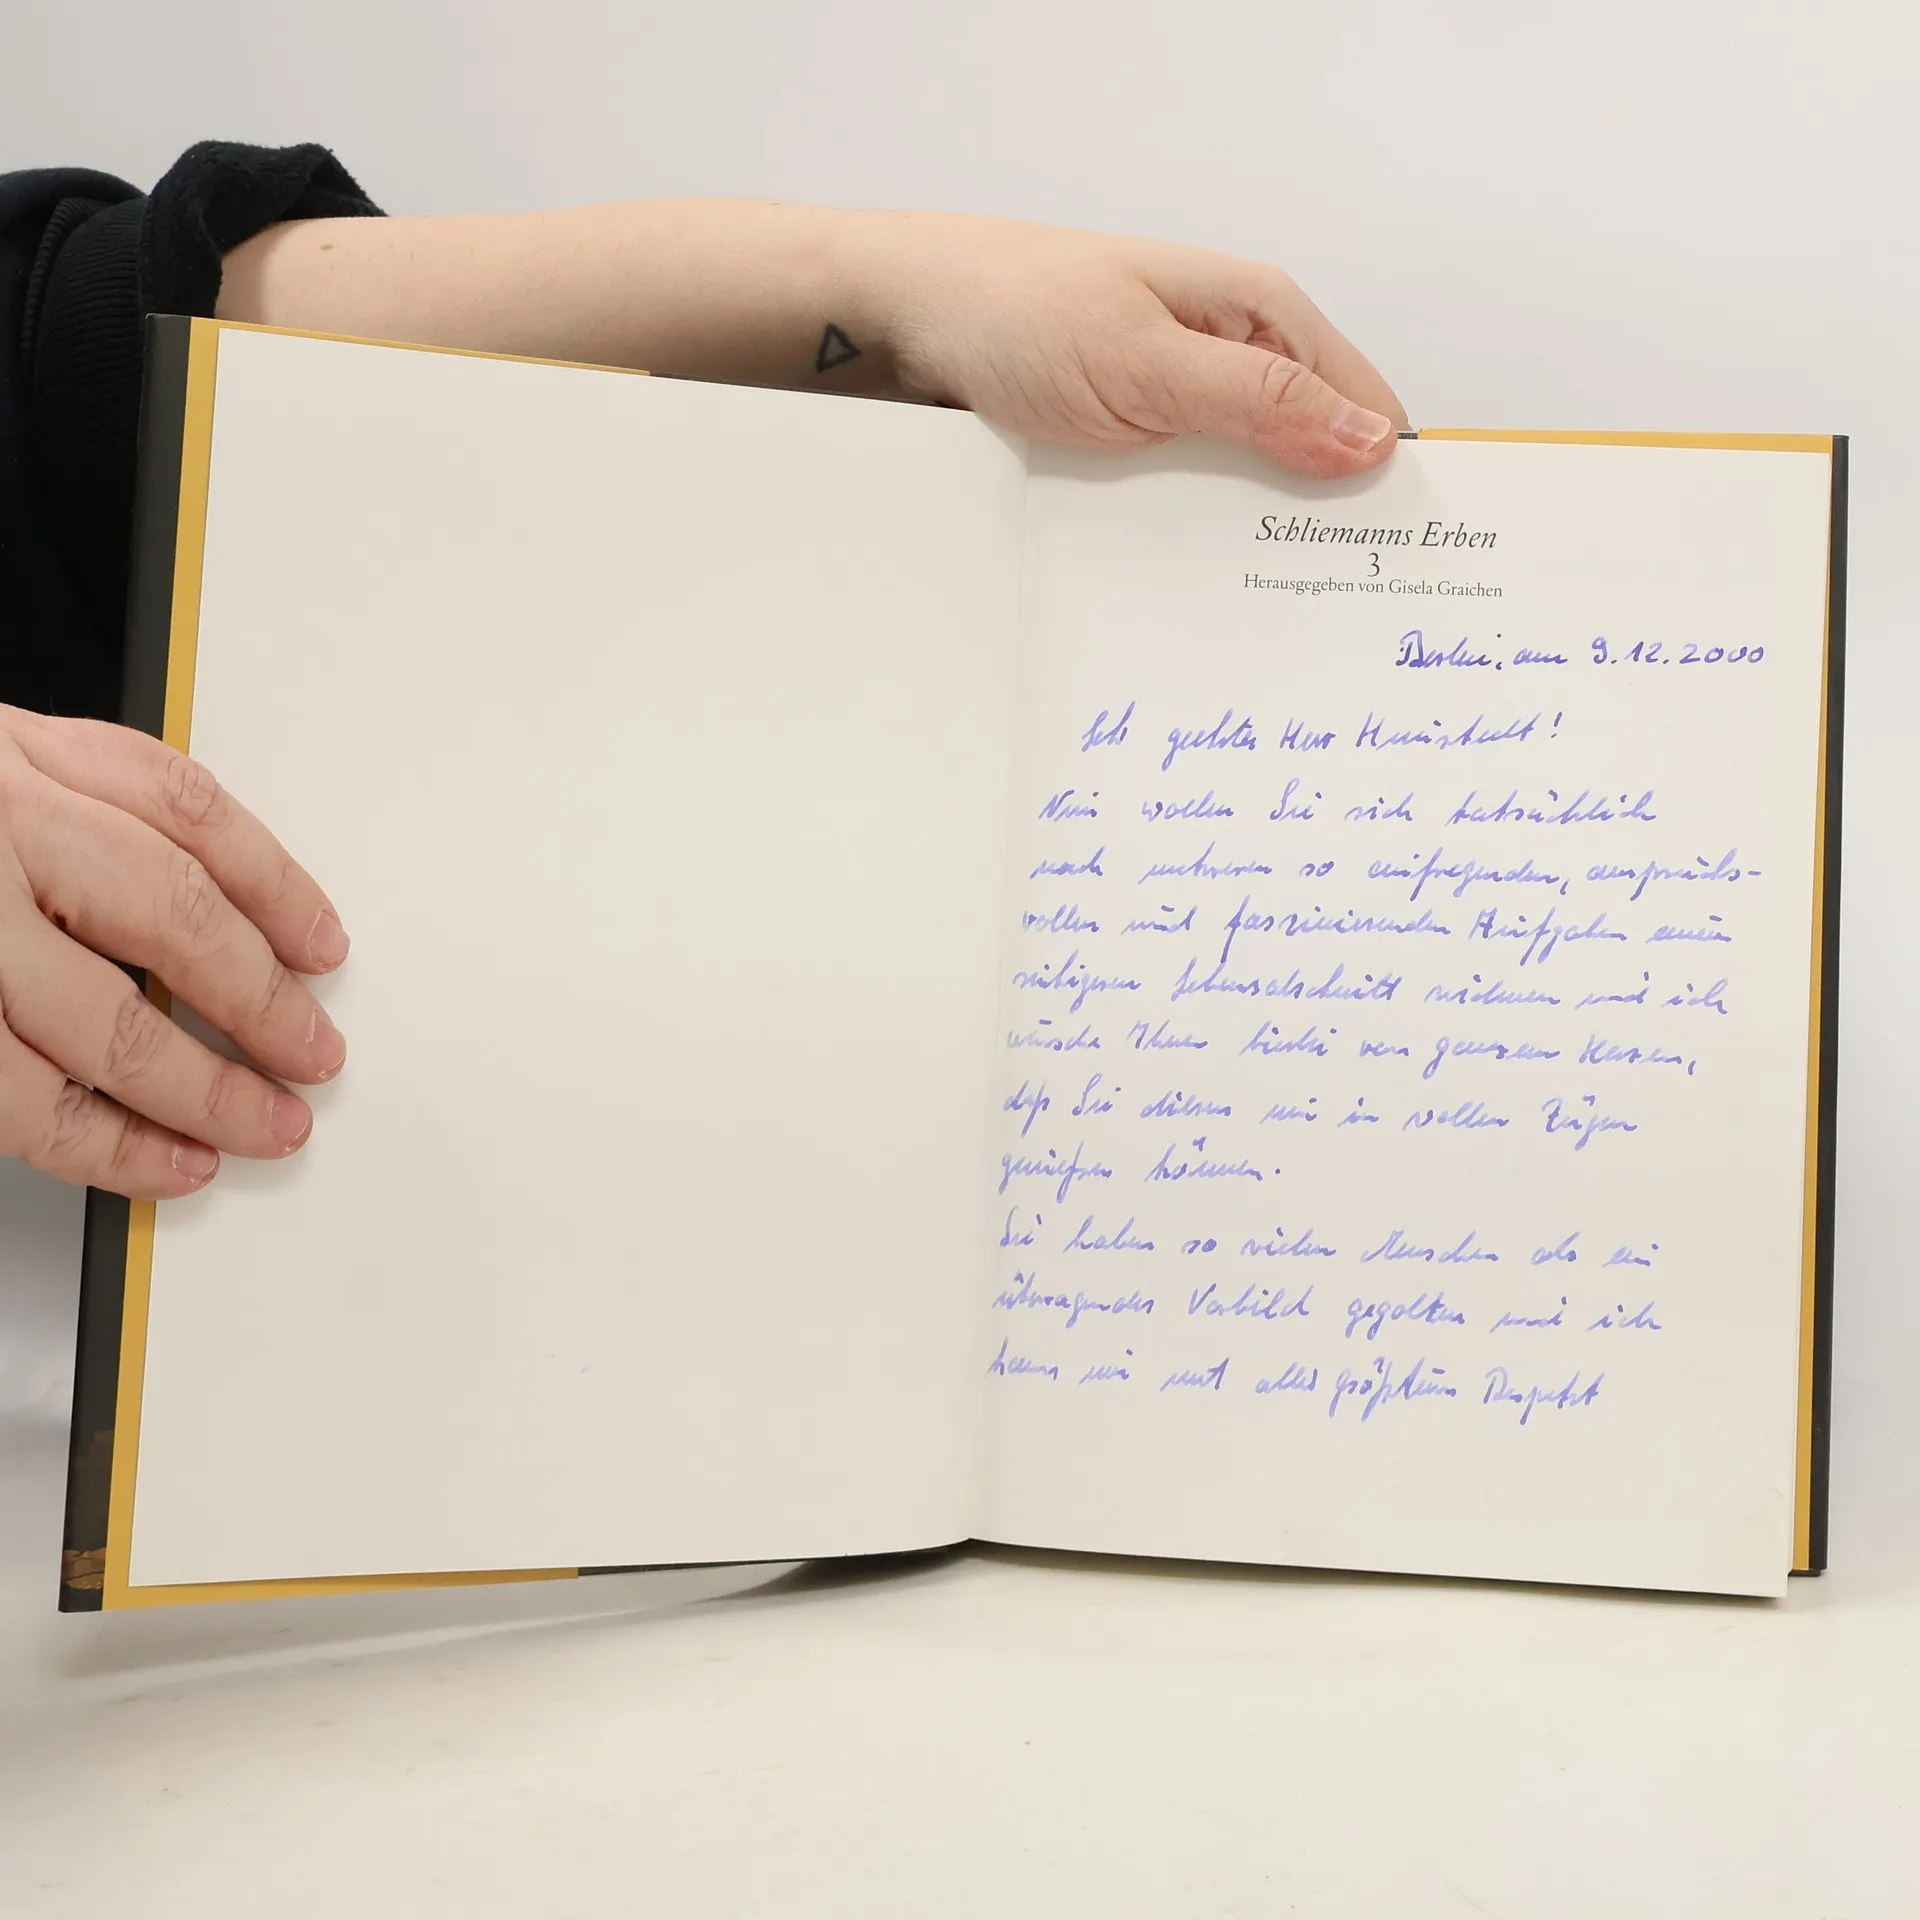 Schliemanns Erben
3
Herausgegeben von Gisela Graichen
Berlin, am 9.12.2000
Sehr geehrter Herr
Nun wollen Sie sich tatsächlich
nach so aufregenden, anspruchs-
vollen und faszinierenden Aufgaben einem
ruhigeren Lebensabschnitt widmen und ich
wünsche Ihnen hierbei von ganzem Herzen,
daß Sie diesen nun in vollen Zügen
genießen können.
Sie haben so vielen Menschen als ein
überragendes Vorbild gegolten und ich
kann nur mit aller größtem Respekt